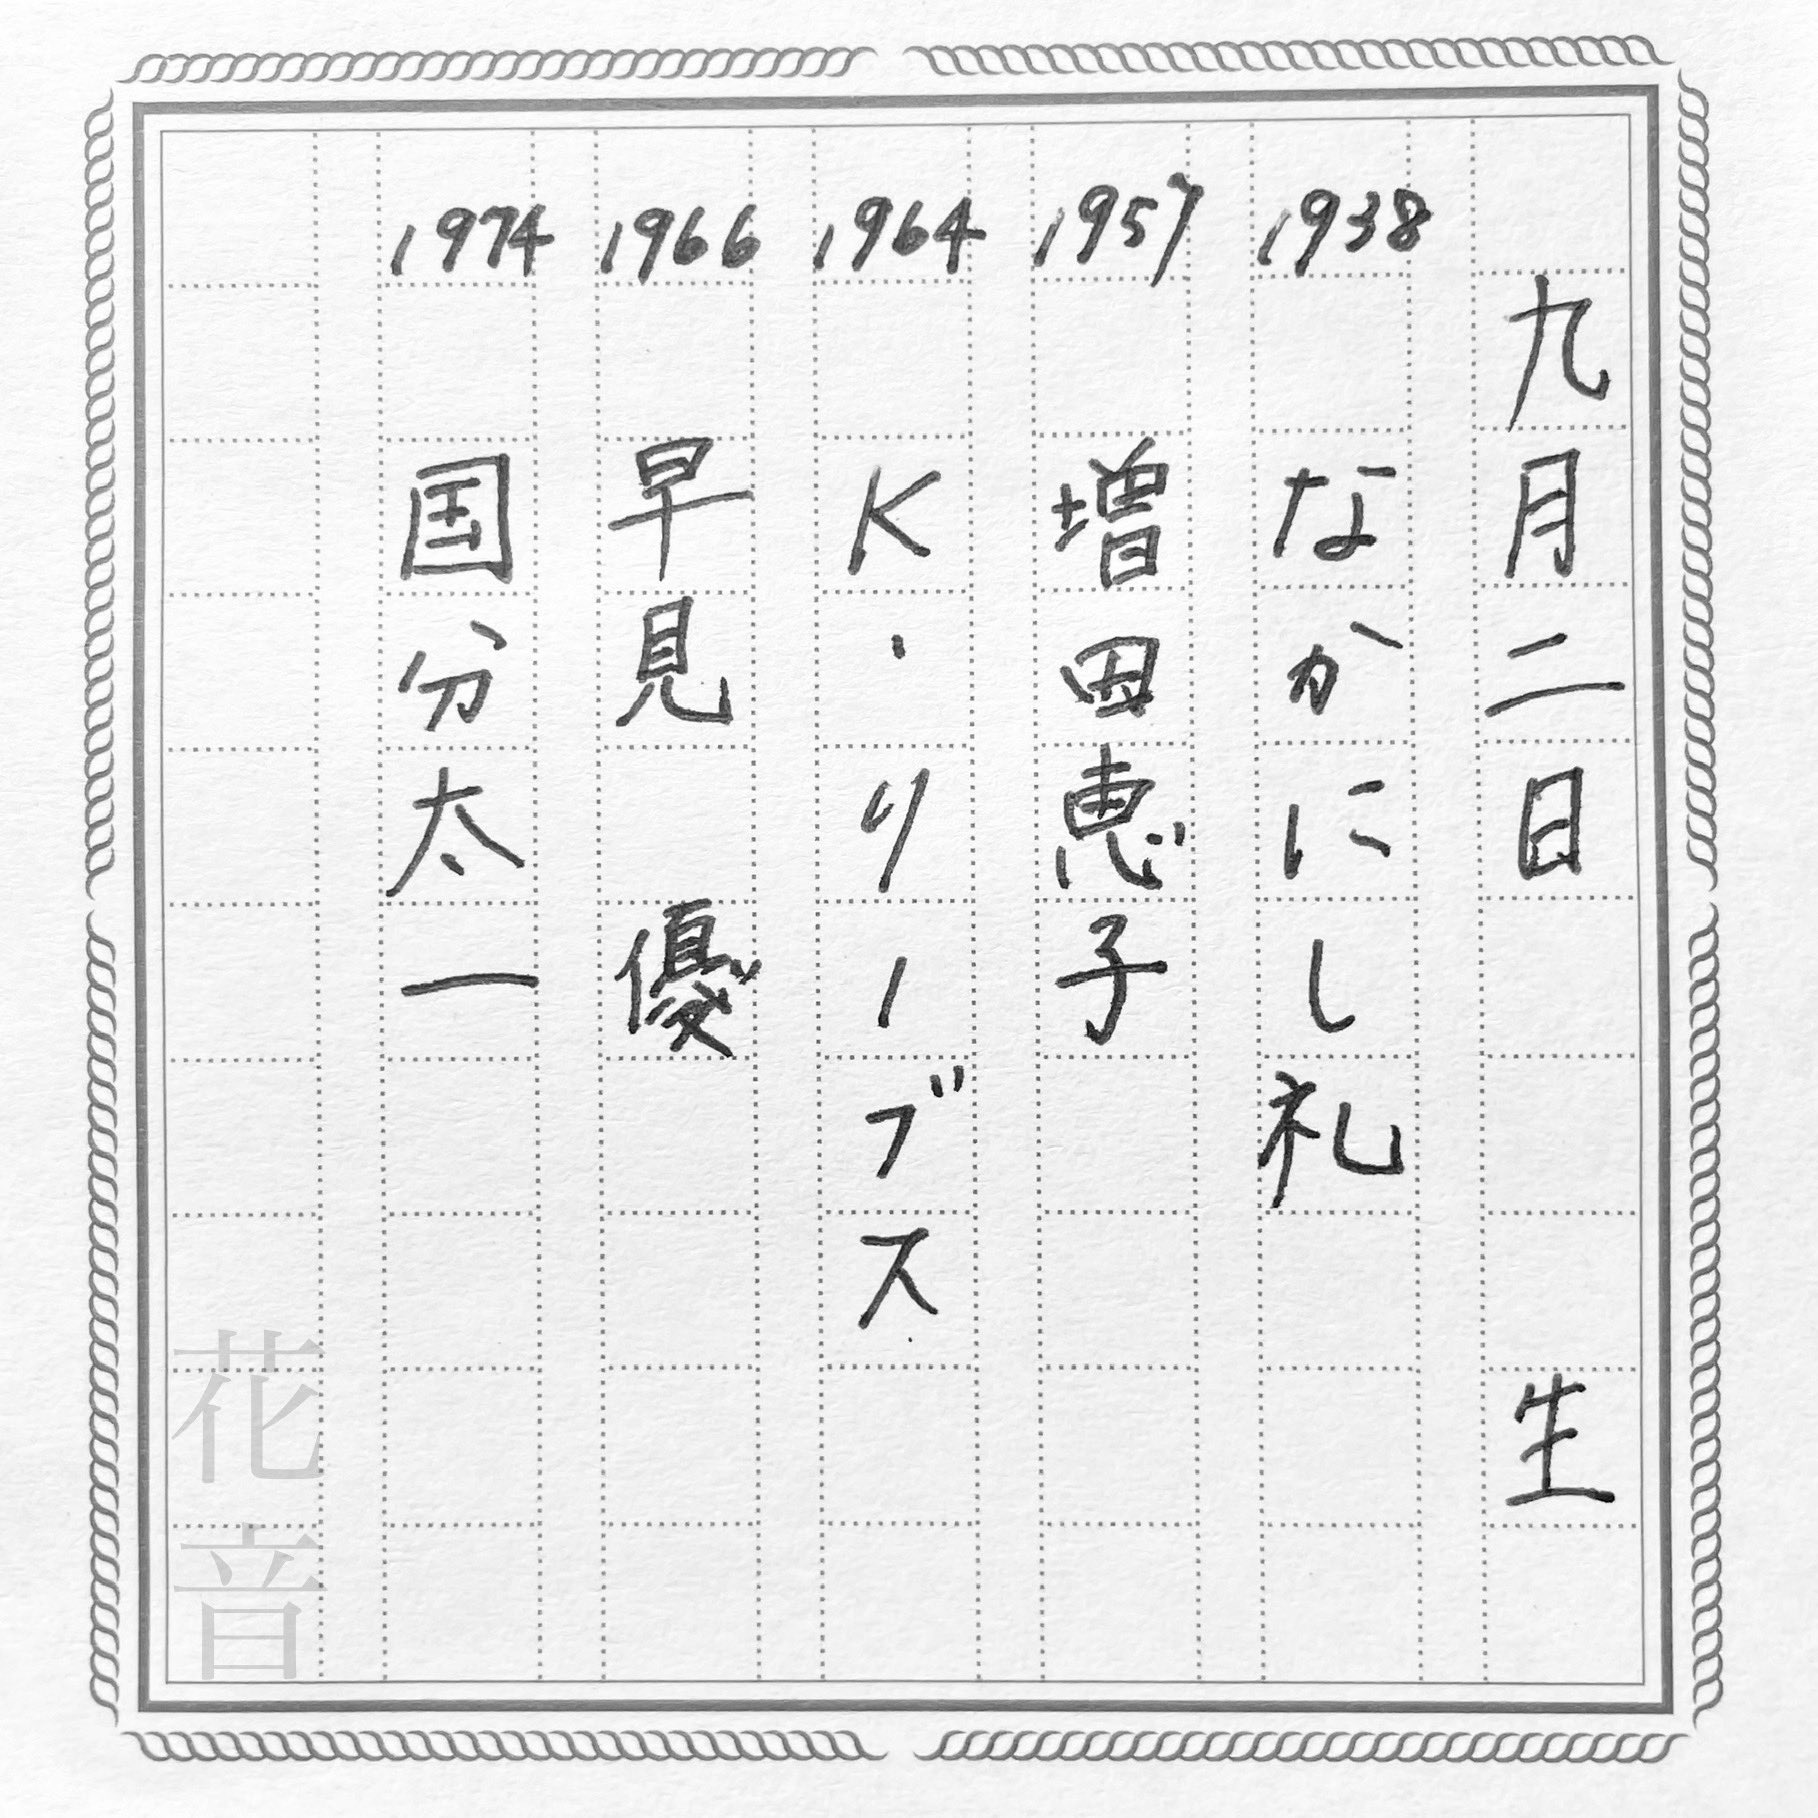 九月二日 生
1938 なかにし礼
1957 増田恵子
1964 K・リーブス
1966 早見 優
1974 国分太一
花音